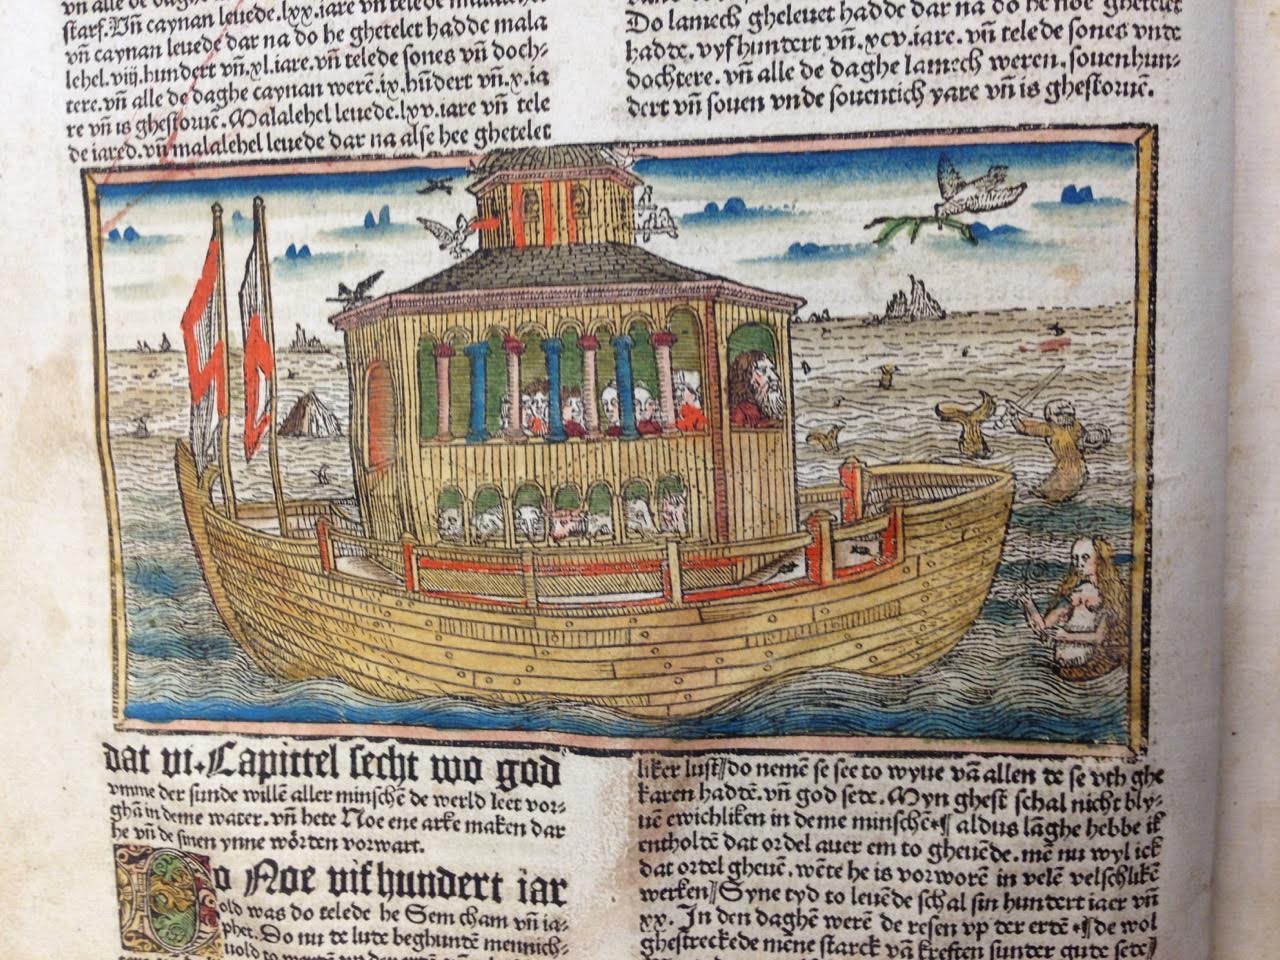 vn̄ alle de daghe
starf. Vn̄ caynan leuede .lxx. iare vn̄ telede malalehel
vn̄ caynan leuede dar na do he ghetelet hadde mala
lehel. viij. hundert vn̄. xl. iare. vn̄ telede sones vn̄ doch⸗
tere. vn̄ alle de daghe caynan werē. ix. hūdert vn̄. x. ia
re vn̄ is ghestoruē. Malalehel leuede. lxv. iare vn̄ tele
de iared. vn̄ malalehel leuede dar na alse hee ghetelet
Do lamech gheleuet hadde dar na do he noe ghetelet
hadte. vyfhundert vn̄. xcv. iare. vn̄ telede sones vnde
dochtere. vn̄ alle de daghe lamech weren. souenhun⸗
dert vn̄ souen vnde souentich yare vn̄ is ghestoruē.
dat vi. Capittel secht wo god
vmme der sunde willē aller minschē de werld leet vor⸗
ghā in deme water. vn̄ hete Noe ene arke maken dar
he vn̄ de sinen ynne wörten vorwart.
Do Noe vifhundert iar
old was do telede he Sem cham vn̄ ia⸗
phet. Do nu te lute beghuntē mennich⸗
uold to
liker lust// do nemē se see to wyue vā allen te se vth ghe
karen hadtē. vn̄ god sete. Myn ghest schal nicht bly⸗
uē ewichliken in deme minschē aldus lāghe hebbe ik
entholtē dat ordel auer em to gheuēde. mē nu wyl ick
dat ortel gheuē. wēte he is vorworē in velē velschlikē
werken// Syne tyd to leuēde schal sin hundert iaer vn̄
xx. In den daghē werē de resen vp der ertē de wol
ghestreckede mēne starck vā kreften sunter gute sete//